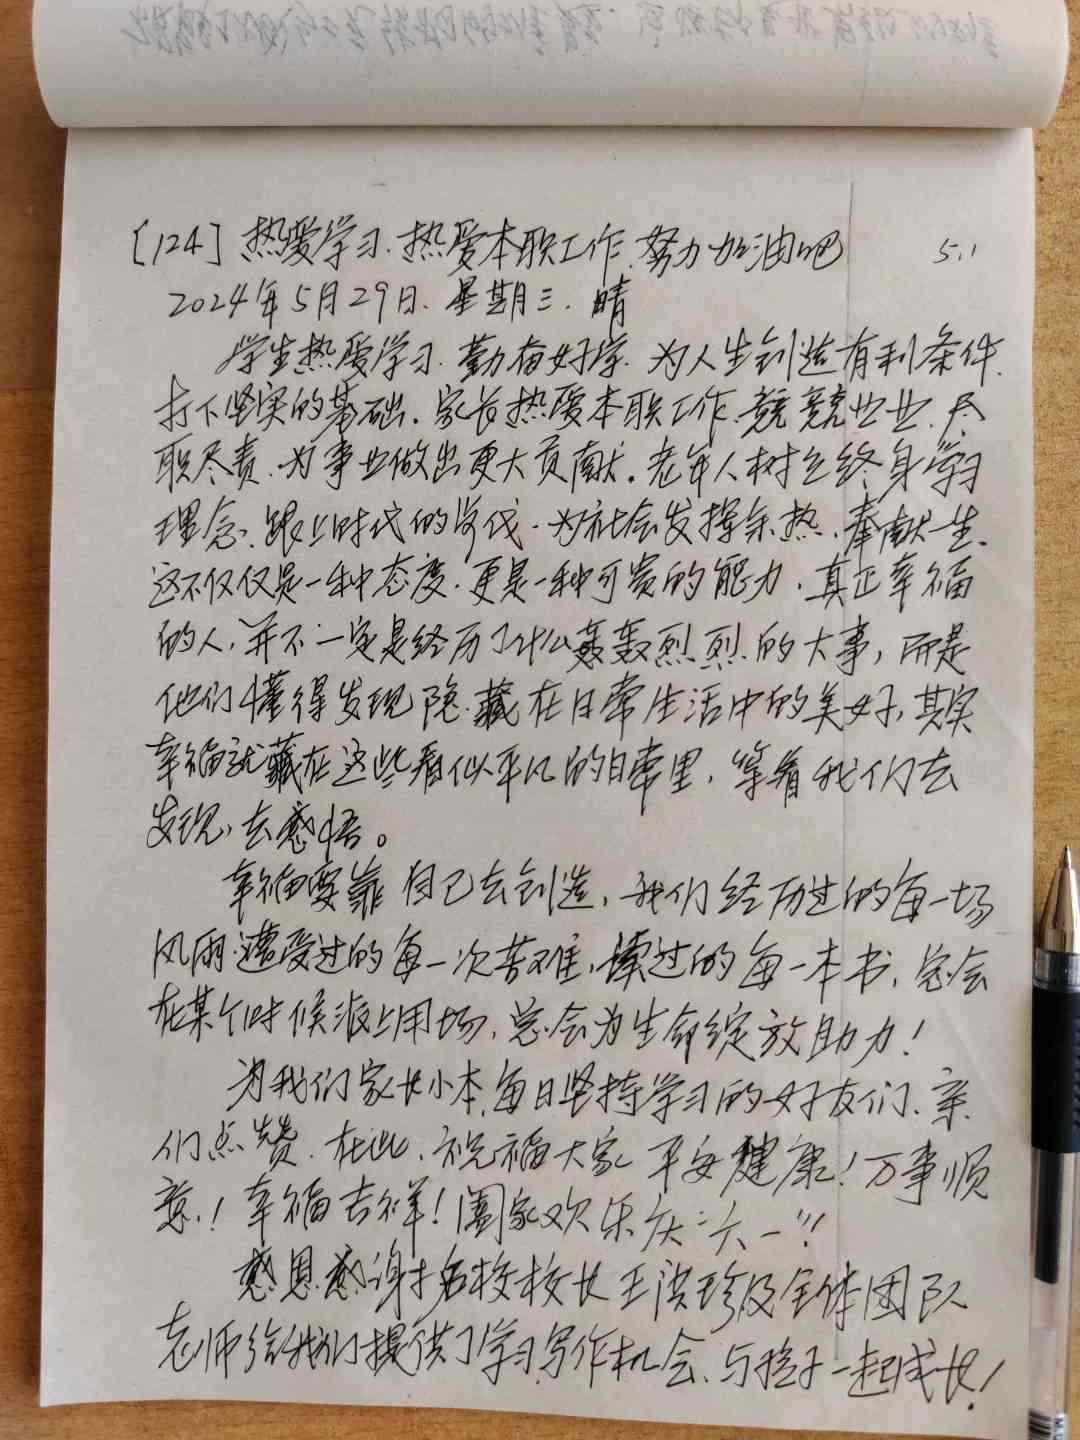 [124] 热爱学习、热爱本职工作、努力加油吧 5.1
2024年5月29日、星期三、晴
学生热爱学习、勤奋好学、为人生创造有利条件、
打下坚实的基础。家长热爱本职工作、兢兢业业、尽
职尽责、为事业做出更大贡献。老年人树立终身学习
理念、跟上时代的步伐、为社会发挥余热、奉献一生、
这不仅仅是一种态度、更是一种可贵的能力、真正幸福
的人、并不一定是经历了什么轰轰烈烈的大事，而是
他们懂得发现隐藏在日常生活中的美好，其实
幸福就藏在这些看似平凡的日常里，等着我们去
发现，去感悟。
幸福要靠自己去创造，我们经历过的每一场
风雨、遭受过的每一次苦难，读过的每一本书，总会
在某个时候派上用场，总会为生命绽放助力！
为我们家长小本、每日坚持学习的好友们、亲
们点赞、在此、祝福大家平安健康！万事顺
意！幸福吉祥！阖家欢乐庆“六一”！
感恩感谢才名校校长王洪珍及全体团队
老师给我们提供了学习写作机会、与孩子一起成长！